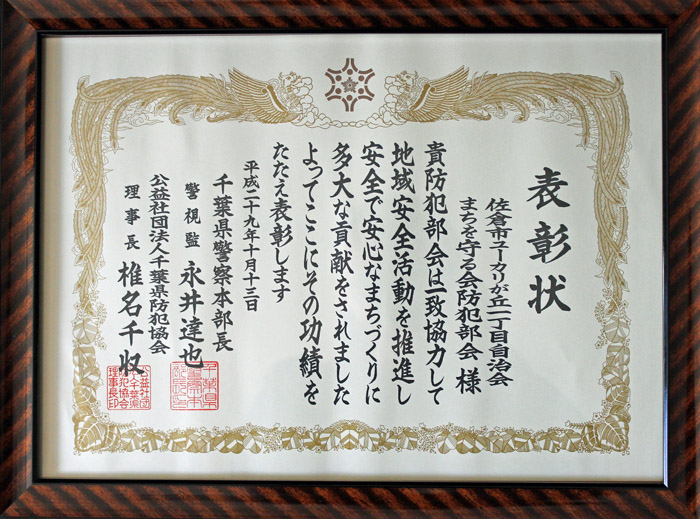 表彰状
佐倉市ユーカリが丘一丁目自治会
まちを守る会防犯部会 様
貴防犯部会は一致協力して
地域安全活動を推進し
安全で安心なまちづくりに
多大な貢献をされました
よってここにその功績を
たたえ表彰します
平成二十九年十月十三日
千葉県警察本部長
警視監 永井達也
公益社団法人千葉県防犯協会
理事長 椎名千収
千葉県
警察本
部長之
公益社団
法人千葉県
防犯協会
理事長印